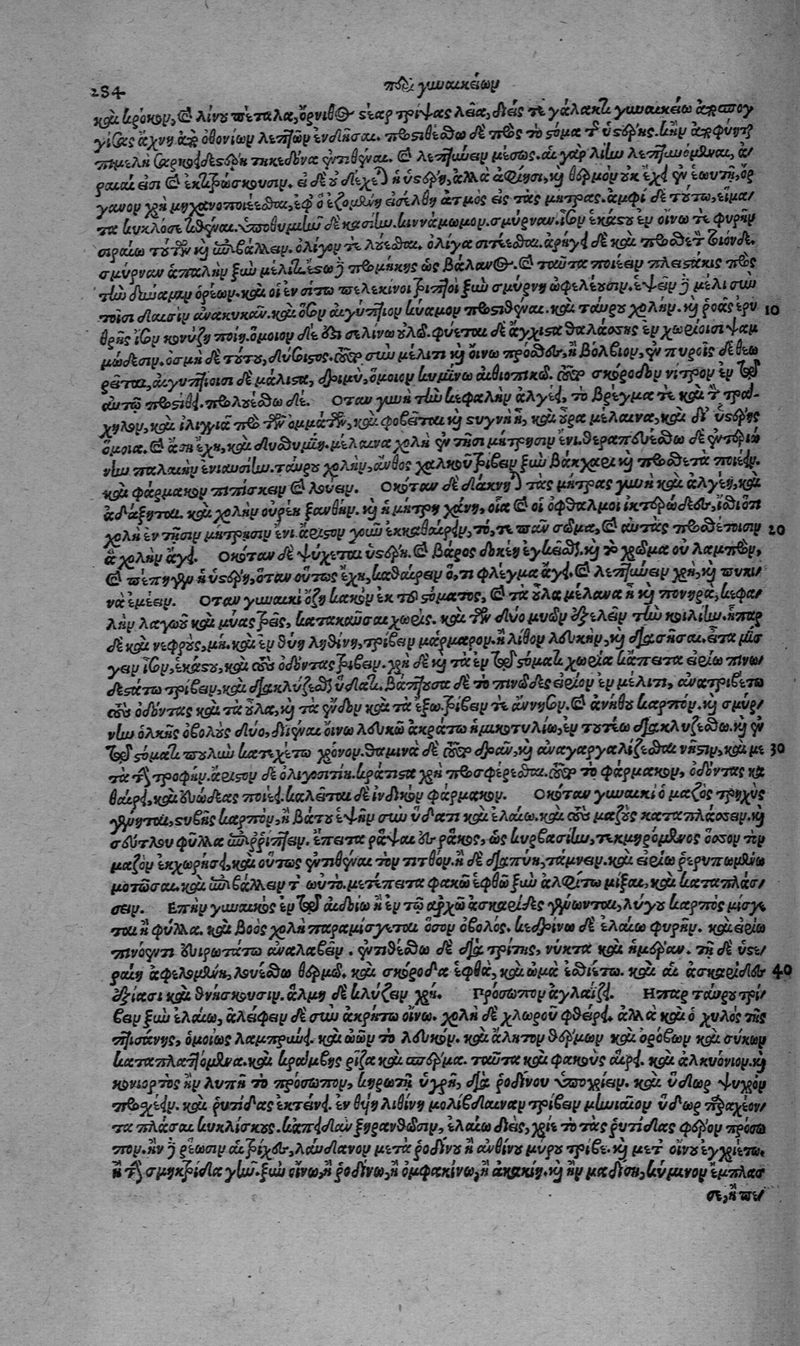 284 περὶ γυναικείων
καὶ κρόκον, καὶ λίνου πέταλα, ὄρνιθος στέαρ τρίψας λεῖα, διεὶς τε γάλακτι γυναικείω
ἄχνη ὀθονίων λεπτῶν ἐνδῆσαι. προσθέσθω δὲ πρὸς τὸ στόμα τῆς ὑστέρης. κὴν
πιμελὴ τηκεδόνα ἐντιθέναι. καὶ λεπτύνειν μέσως. αἱ γὰρ λίην λεπτυνόμεναι, ἀ/
ραιαί εἰσι καὶ ἐκτιτρώσκουσιν. ἀλλὰ καὶ θερμὸν οὐκ ἔχει ἐν ἑωυτῇ, ὄρ
γανον χρὴ μηχανοποιέεσθαι, ἐφ' ὃ ἑζομένη ἐσελθῇ ἀτμὸς εἰς τὰς μήτρας. ἀμφὶ δὲ τούτω, εἵμα/
τα κυκλόσε ὑποθυμιῆν δὲ κασίην. κιννάμωμον. σμύρναν. ἴσον ἑκάστου ἐν οἴνω τε φυρῆν
σιραίω τουτέων καὶ ἐπιβάλλειν. ὀλίγον τε λούεσθαι. ὀλίγα σιτέεσθαι. ἀρήγει δὲ καὶ πρόσθετον τόνδε.
σμύρναν ἁπαλὴν ξὺν μέλιτι. ἔστω δὲ προμήκης ὡς βάλανος. καὶ ταῦτα ποιέειν πλειστάκις πρὸς
τὴν δύναμιν ὁρέων. καὶ οἱ ἐν σίτω πελεκῖνοι τριπτοὶ ξὺν σμύρνη ὠφελεῦσιν. ἕψειν δὲ μέλι σὺν
τοῖσι δαισὶν ἀνακυκᾶν. καὶ ὅσον αἰγύπτιον κύαμον προστιθέναι. καὶ ταύρου χολήν. καὶ ῥοιᾶς ἐρυ 10
θρῆς ἴσον κονύζη ποίη. ὅμοιον δὲ σελίνω οὖλω. φύεται δὲ ἄγχιστα θαλάσσης ἐν χωρίοισι ψαμ
μώδεσιν. ὀσμὴ δὲ τούτου, δύσοιστος. σὺν μέλιτι καὶ οἴνω πρόσθες. ἢ βόλβιον, ἐν πυροῖς δὲ
αἰγυπτίοισι δὲ μάλιστα, δριμὺ, ὅμοιον κυμίνω αἰθιοπικῶ. σκόροδον νίτρον ἐν τῶ
αὐτῶ προστίθει. προλουέσθω δέ. Ὅταν γυνὴ τὴν κεφαλὴν ἀλγέει, τὸ βρέγμα τε καὶ τὸν τρά/
χηλον, καὶ ἰλιγγιᾶ πρὸ τῶν ὀμμάτων, καὶ φοβεῖται καὶ στυγνὴ ἦ, καὶ οὖρα μέλαινα, καὶ δι' ὑστέρης
ὅμοια. καὶ ἄση ἔχη, καὶ δυσθυμίη. μέλαινα χολὴ ἐν τῆσι μήτρησιν ἔνι.
ταύρου χολὴν, ἄνθος χαλκοῦ τρίβειν ξὺν βάκχαρι καὶ πρόσθετα ποιέειν.
καὶ φάρμακον πιπίσκειν καὶ λούειν. Ὁκόταν δὲ δάκνηται τὰς μήτρας γυνὴ καὶ ἀλγέη, καὶ
ἀδάξηται. καὶ χολὴν οὐρέη ξανθὴν. καὶ ἡ μήτρη χάνη, οἷα καὶ οἱ ὀφθαλμοὶ ἰκτερώδεες, ἴσθι ὅτι
χολὴ ἐν τῆσιν μήτρησιν ἔνι. ἄριστον γοῦν ἐκκαθαίρειν, τό, τε πᾶν σῶμα, καὶ αὐτὰς προσθέτοισιν 20
ἃ χολὴν ἄγει. Ὁκόταν δὲ ψύχεται ὑστέρη. καὶ βάρος δοκέη ἐγκεῖσθαι. καὶ τὸ χρῶμα οὐ λαμπρὸν,
καὶ πέπηγεν ἡ ὑστέρη, ὅταν οὕτως ἔχη, καθαίρειν ὅ,τι φλέγμα ἄγει. καὶ λεπτύνειν χρὴ, καὶ πυκι/
νὰ ἐμέειν. Ὅταν γυναικὶ ὄζη κακὸν ἐκ τοῦ στόματος, καὶ τὰ οὖλα μέλανα ᾖ καὶ πονηρά, κεφα/
λὴν λαγωοῦ καὶ μύας τρεῖς, κατακαῦσαι χωρίς. καὶ τῶν δύο μυῶν ἐξελεῖν τὴν κοιλίην. ἧπαρ
δὲ καὶ νεφρούς, μή. καὶ ἐν θύη λιθίνη, τρίβειν μάρμαρον. ἢ λίθον λευκήν, καὶ διασῆσαι. εἶτα μίσ
γειν ἴσον ἑκάστου, καὶ τοὺς ὀδόντας τρίβειν. χρὴ δὲ καὶ τὰ ἐν τῶ στόματι χωρία κἄπειτα εἰρίω πινω/
δεστάτω τρίβειν, καὶ διακλύζεσθαι ὕδατι. βαπτοῦσα δὲ τὸ πινῶδες εἴριον ἐν μέλιτι, ἀνατριβέτω
τοὺς ὀδόντας καὶ τὰ οὖλα, καὶ τὰ ἔνδον καὶ τὰ ἔξω. τρίβειν τε ἄννησον. καὶ ἀνήθου καρπόν. καὶ σμύρ/
νην ὁλκῆς ὀβολοὺς δύο, διεῖναι οἴνω λευκῶ ἀκράτω ἡμικοτυλίω, ἐν τουτέω διακλυζέσθω. καὶ ἐν
τῶ στόματι πουλὺν κατεχέτω χρόνον. θαμινὰ δὲ δρᾶν, καὶ ἀναγαργαλίζεσθαι νῆστιν, καὶ με 30
τὰ τὴν τροφήν. ἄριστον δὲ ὀλιγοσιτίη. κράτιστα χρὴ προσφέρεσθαι. τὸ φάρμακον, ὀδόντας κα
θαίρει, καὶ εὐώδεας ποιέει. καλεῖται δὲ ἰνδικὸν φάρμακον. Ὁκόταν γυναικὶ ὁ μαζὸς τρηχὺς
γένηται, στύβης καρπὸν, ἢ βάτου ἕψην σὺν ὕδατι καὶ ἐλαίω. καὶ τοὺς μαζοὺς καταπλάσσειν. καὶ
σεύτλου φύλλα ἐπιρρίπτειν. ἔπειτα ῥάψαι ἐς ῥάκος, ὡς κυρβασίην, τεκμηρόμενος ὅσσον τὸν
μαζὸν ἐκχωρῆσαι, καὶ οὕτως ἐντιθέναι τὸν τιτθόν. ἢν δὲ διαπύη, τάμνειν. καὶ εἰρίω ῥερυπωμένω
μοτῶσαι. καὶ ἐπιβάλλειν τ' ὠυτό. μετέπειτα φακῶ ἑφθῶ ξὺν ἀλφίτω μίξαι, καὶ καταπλάσ/
σειν. Ἐπὴν γυναικὸς ἐν τῶ αἰδοίω ἢ ἐν τῶ ἀρχῶ ἀσκαρίδες γένωνται, λύγου καρπὸς μίσγε
ται ἢ φύλλα. καὶ βοὸς χολὴ παραμίσγεται ὅσον ὀβολός. κεδρίνω δὲ ἐλαίω φυρῆν. καὶ εἰρίω
πινόεντι εὐειρωτάτω ἀναλαβεῖν. ἐντιθέσθω δὲ διὰ τρίτης, νύκτα καὶ ἡμέραν. τῇ δὲ ὑστε/
ραίη ἀφελομένη, λουέσθω θερμῶ. καὶ σκόροδα ἑφθὰ, καὶ ὠμὰ ἐσθιέτω. καὶ αἱ ἀσκαρίδες 40
ἐξίασι καὶ θνήσκουσιν. ἅλμη δὲ κλύζειν χρή. Πρόσωπον ἀγλαΐζει. Ἧπαρ ταύρου τρί/
βειν ξὺν ἐλαίω, ἀλείφειν δὲ σὺν ἀκρήτω οἴνω. χολὴ δὲ χλωροῦ φθείρει. ἀλλὰ καὶ ὁ χυλὸς τῆς
πτισάνης, ὁμοίως λαμπραίνει. καὶ ὠῶν τὸ λευκόν. καὶ ἄλητον θέρμων καὶ ὀρόβων καὶ σύκων
καταπλαττόμενα. καὶ κράμβης ῥίζα καὶ σπέρμα. ταῦτα καὶ φακοὺς αἴρει. καὶ ἀλκυόνιον. καὶ
κονιορτὸς ἢν λυπῆ τὸ πρόσωπον, κηρωτῆ ὑγρῆ, διὰ ῥοδίνου ὑποχρίειν. καὶ ὕδωρ ψυχρὸν
προσχέειν. καὶ ῥυτίδας ἐκτείνει. ἐν θυῇ λιθίνη μολίβδαιναν τρίβειν ὕδωρ παραχέον/
τα πλάσαι κυκλίσκους. κἀπειδὰν ξηρανθῶσιν, ἐλαίω διεὶς, χρῖε τὸ τὰς ῥυτίδας φέρον πρόσω
πον. ἢν δὲ ῥέωσιν αἱ τρίχες, λάδανον μετὰ ῥοδίνου ἢ ἀνθίνου μύρου τρῖβε. καὶ μετ' οἴνου ἐγχριέτω.
ἢ τὴν σμηκτρίδα γῆν. ξὺν οἴνω, ἢ ῥοδίνω, ἢ ὀμφακίνω, ἢ ἀκακίη. καὶ ἢν μαδίση, κύμινον ἔμπλασ
σε, ἢ πε/